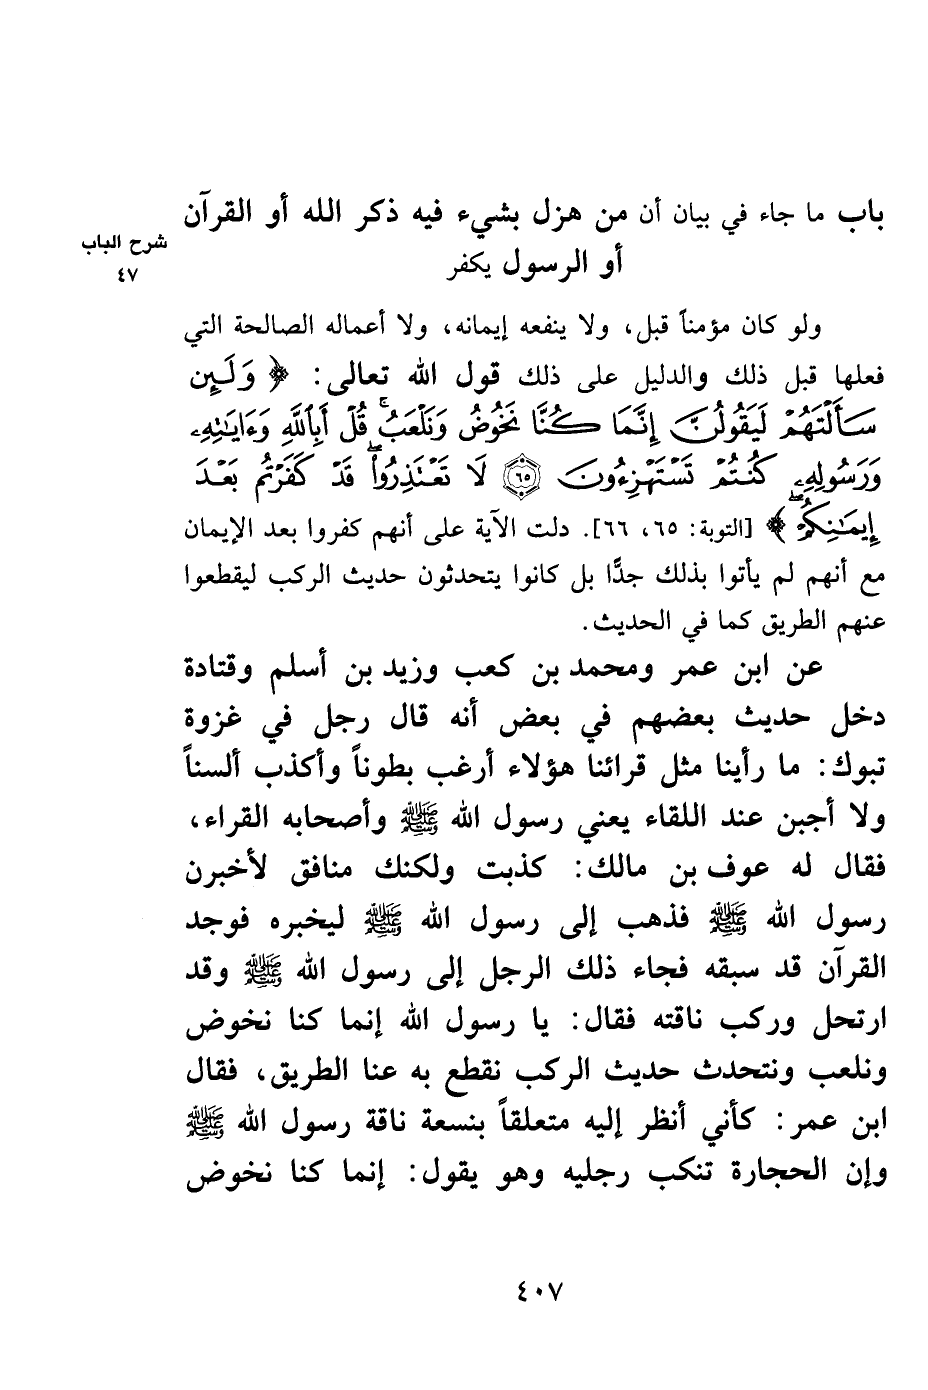 باب ما جاء في بيان أن من هزل بشيء فيه ذكر الله أو القرآن
أو الرسول يكفر
شرح الباب
٤٧
ولو كان مؤمناً قبل، ولا ينفعه إيمانه، ولا أعماله الصالحة التي
فعلها قبل ذلك والدليل على ذلك قول الله تعالى: ﴿ وَلَئِن
سَأَلْتَهُمْ لَيَقُولُنَّ إِنَّمَا كُنَّا نَخُوضُ وَنَلْعَبُ ۚ قُلْ أَبِاللَّهِ وَءَايَٰتِهِۦ
وَرَسُولِهِۦ كُنتُمْ تَسْتَهْزِءُونَ ۝٦٥ لَا تَعْتَذِرُوا۟ ۖ قَدْ كَفَرْتُم بَعْدَ
إِيمَٰنِكُمْ ۚ ﴾ [التوبة: ٦٥، ٦٦]. دلت الآية على أنهم كفروا بعد الإيمان
مع أنهم لم يأتوا بذلك جدًّا بل كانوا يتحدثون حديث الركب ليقطعوا
عنهم الطريق كما في الحديث.
عن ابن عمر ومحمد بن كعب وزيد بن أسلم وقتادة
دخل حديث بعضهم في بعض أنه قال رجل في غزوة
تبوك: ما رأينا مثل قرائنا هؤلاء أرغب بطوناً وأكذب ألسناً
ولا أجبن عند اللقاء يعني رسول الله ﷺ وأصحابه القراء،
فقال له عوف بن مالك: كذبت ولكنك منافق لأخبرن
رسول الله ﷺ فذهب إلى رسول الله ﷺ ليخبره فوجد
القرآن قد سبقه فجاء ذلك الرجل إلى رسول الله ﷺ وقد
ارتحل وركب ناقته فقال: يا رسول الله إنما كنا نخوض
ونلعب ونتحدث حديث الركب نقطع به عنا الطريق، فقال
ابن عمر: كأني أنظر إليه متعلقاً بنسعة ناقة رسول الله ﷺ
وإن الحجارة تنكب رجليه وهو يقول: إنما كنا نخوض
٤٠٧